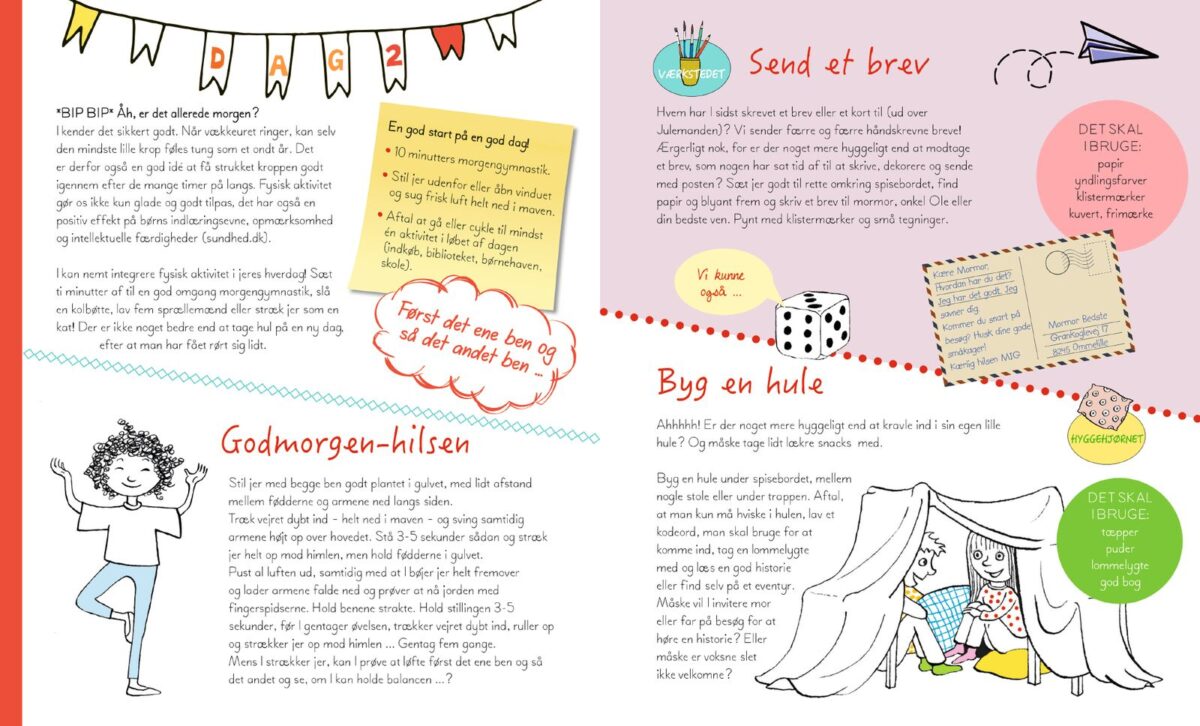 DAG 2
*BIP BIP* Åh, er det allerede morgen?
I kender det sikkert godt. Når vækkeuret ringer, kan selv
den mindste lille krop føles tung som et ondt år. Det
er derfor også en god ide at få strukket kroppen godt
igennem efter de mange timer på langs. Fysisk aktivitet
gør os ikke kun glade og godt tilpas, det har også en
positiv effekt på børns indlæringsevne, opmærksomhed
og intellektuelle færdigheder (sundhed.dk).
I kan nemt integrere fysisk aktivitet i jeres hverdag! Sæt
ti minutter af til en god omgang morgengymnastik, slå
en kolbøtte, lav fem sprællemænd eller stræk jer som en
kat! Der er ikke noget bedre end at tage hul på en ny dag,
efter at man har fået rørt sig lidt.
En god start på en god dag!
• 10 minutters morgengymnastik.
• Stil jer udenfor eller åbn vinduet
og sug frisk luft helt ned i maven.
• Aftal at gå eller cykle til mindst
én aktivitet i løbet af dagen
(indkøb, biblioteket, børnehaven,
skole).
Først det ene ben og
så det andet ben ...
Godmorgen-hilsen
Stil jer med begge ben godt plantet i gulvet, med lidt afstand
mellem fødderne og armene ned langs siden.
Træk vejret dybt ind - helt ned i maven - og sving samtidig
armene højt op over hovedet. Stå 3-5 sekunder sådan og stræk
jer helt op mod himlen, men hold fødderne i gulvet.
Pust al luften ud, samtidig med at I bøjer jer helt fremover
og lader armene falde ned og prøver at nå jorden med
fingerspidserne. Hold benene strakte. Hold stillingen 3-5
sekunder, før I gentager øvelsen, trækker vejret dybt ind, ruller op
og strækker jer op mod himlen ... Gentag fem gange.
Mens I strækker jer, kan I prøve at løfte først det ene ben og så
det andet og se, om I kan holde balancen ...?
VÆRKSTEDET
Send et brev
Hvem har I sidst skrevet et brev eller et kort til (ud over
Julemanden)? Vi sender færre og færre håndskrevne breve!
Ærgerligt nok, for er der noget mere hyggeligt end at modtage
et brev, som nogen har sat tid af til at skrive, dekorere og sende
med posten? Sæt jer godt til rette omkring spisebordet, find
papir og blyant frem og skriv et brev til mormor, onkel Ole eller
din bedste ven. Pynt med klistermærker og små tegninger.
DET SKAL
I BRUGE:
papir
yndlingsfarver
klistermærker
kuvert, frimærke
Vi kunne
også ...
Kære Mormor,
Hvordan har du det?
Jeg har det godt. Jeg
savner dig.
Kommer du snart på
besøg? Husk dine gode
småkager!
Kærlig hilsen MIG
Mormor Bedste
Grankoglevej 17
8245 Ommelille
Byg en hule
HYGGEHJØRNET
Ahhhhh! Er der noget mere hyggeligt end at kravle ind i sin egen lille
hule? Og måske tage lidt lækre snacks med.
Byg en hule under spisebordet, mellem
nogle stole eller under trappen. Aftal,
at man kun må hviske i hulen, lav et
kodeord, man skal bruge for at
komme ind, tag en lommelygte
med og læs en god historie
eller find selv på et eventyr.
Måske vil I invitere mor
eller far på besøg for at
høre en historie? Eller
måske er voksne slet
ikke velkomne?
DET SKAL
I BRUGE:
tæpper
puder
lommelygte
god bog